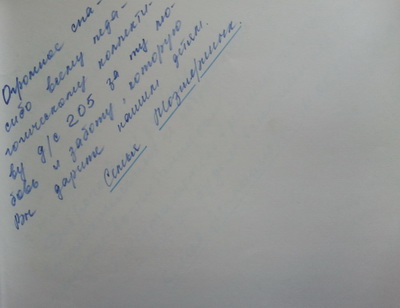 Огромное спа-
сибо всему педа-
гогическому коллекти-
ву д/с 205 за ту лю-
бовь и заботу, которую
Вы дарите нашим детям.
Семья